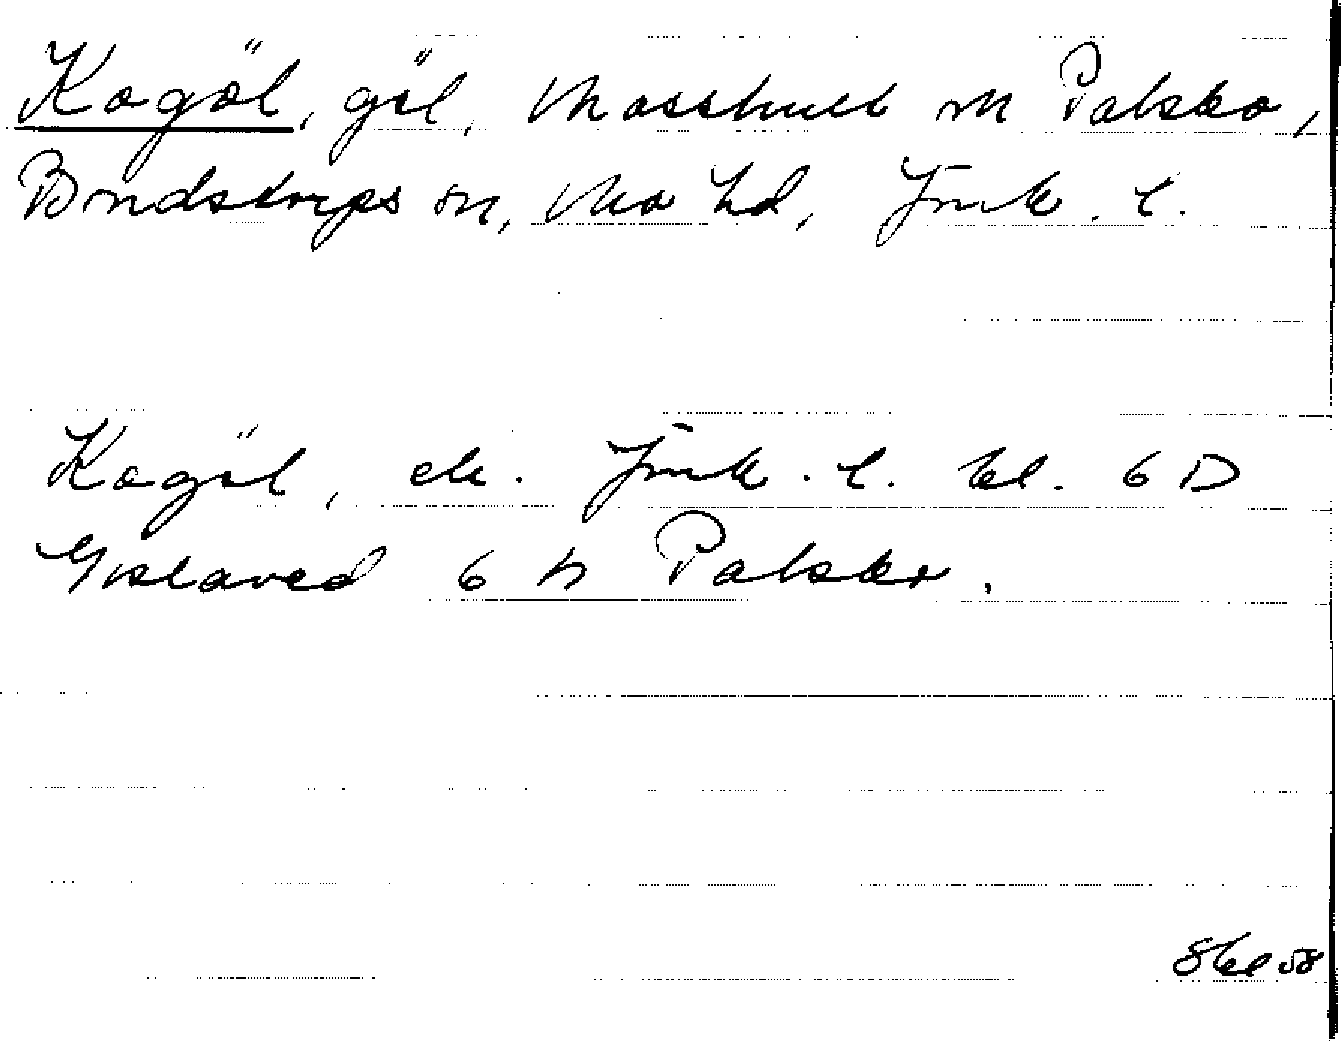 Kagöl, göl, Mosshult m Palsbo,
Bondstorps sn, Mo hd, Jmk. l.
Kagöl, ek. Jmk. l. bl. 6 D
Gislaved 6 h Palsbo.
Skl 58